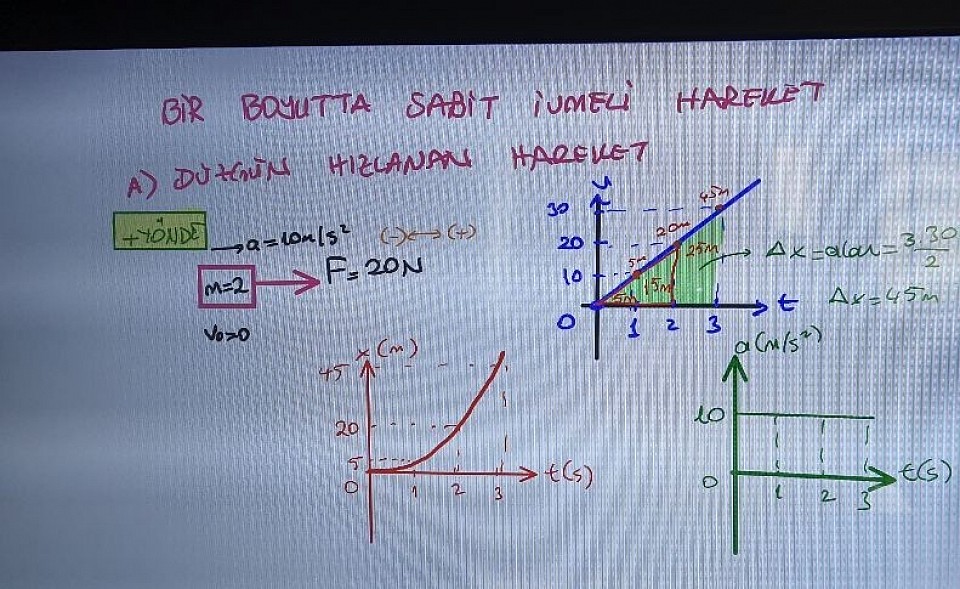 BİR BOYUTTA SABİT İVMELİ HAREKET
A) DÜZGÜN HIZLANAN HAREKET
+YÖNDE
a=10m/s²
(-)↔(+)
m=2
F=20N
V₀=0
v
30
20
10
0
1 2 3
t
5m
20m
45m
5m
15m
25m
Δx=alan=3.30/2
Δx=45m
x(m)
45
20
5
0
1 2 3
t(s)
a(m/s²)
10
0
1 2 3
t(s)